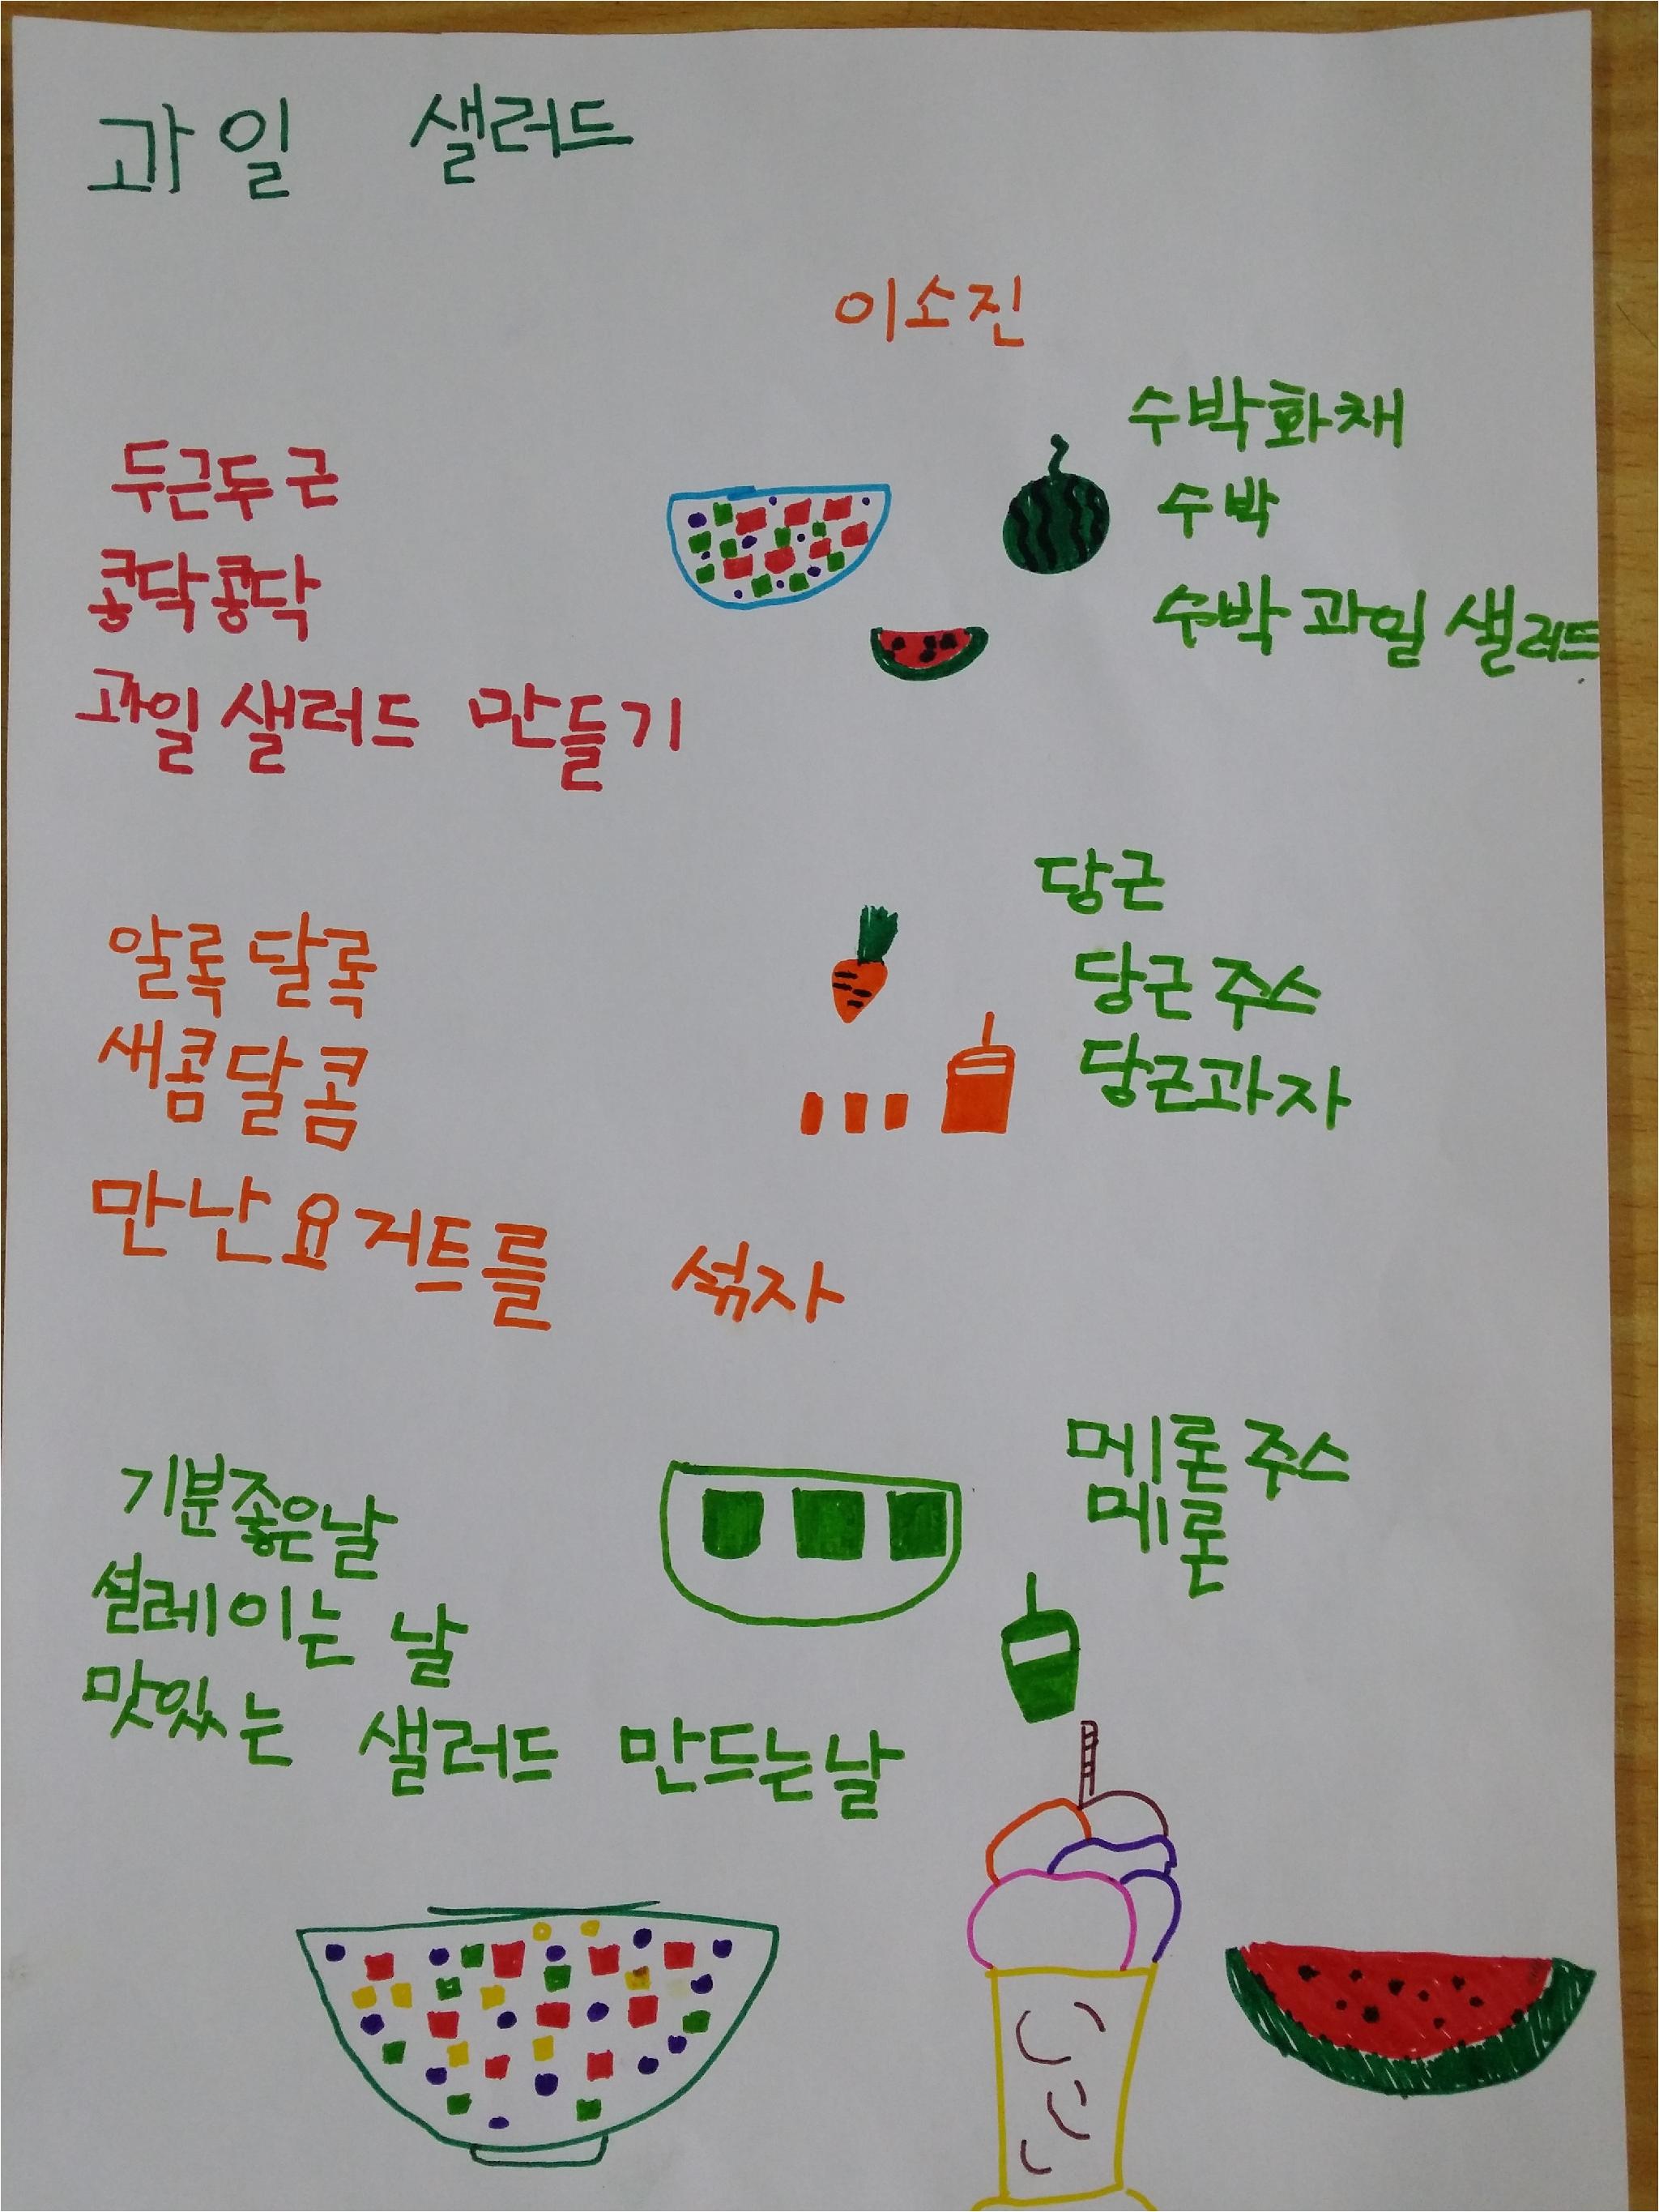 과일 샐러드
이소진
두근두근
콩닥콩닥
과일 샐러드 만들기
수박화채
수박
수박 과일 샐러드
알록달록
새콤달콤
만난요거트를 섞자
당근
당근주스
당근과자
기분좋은날
설레이는 날
맛있는 샐러드 만드는날
메론주스
메론